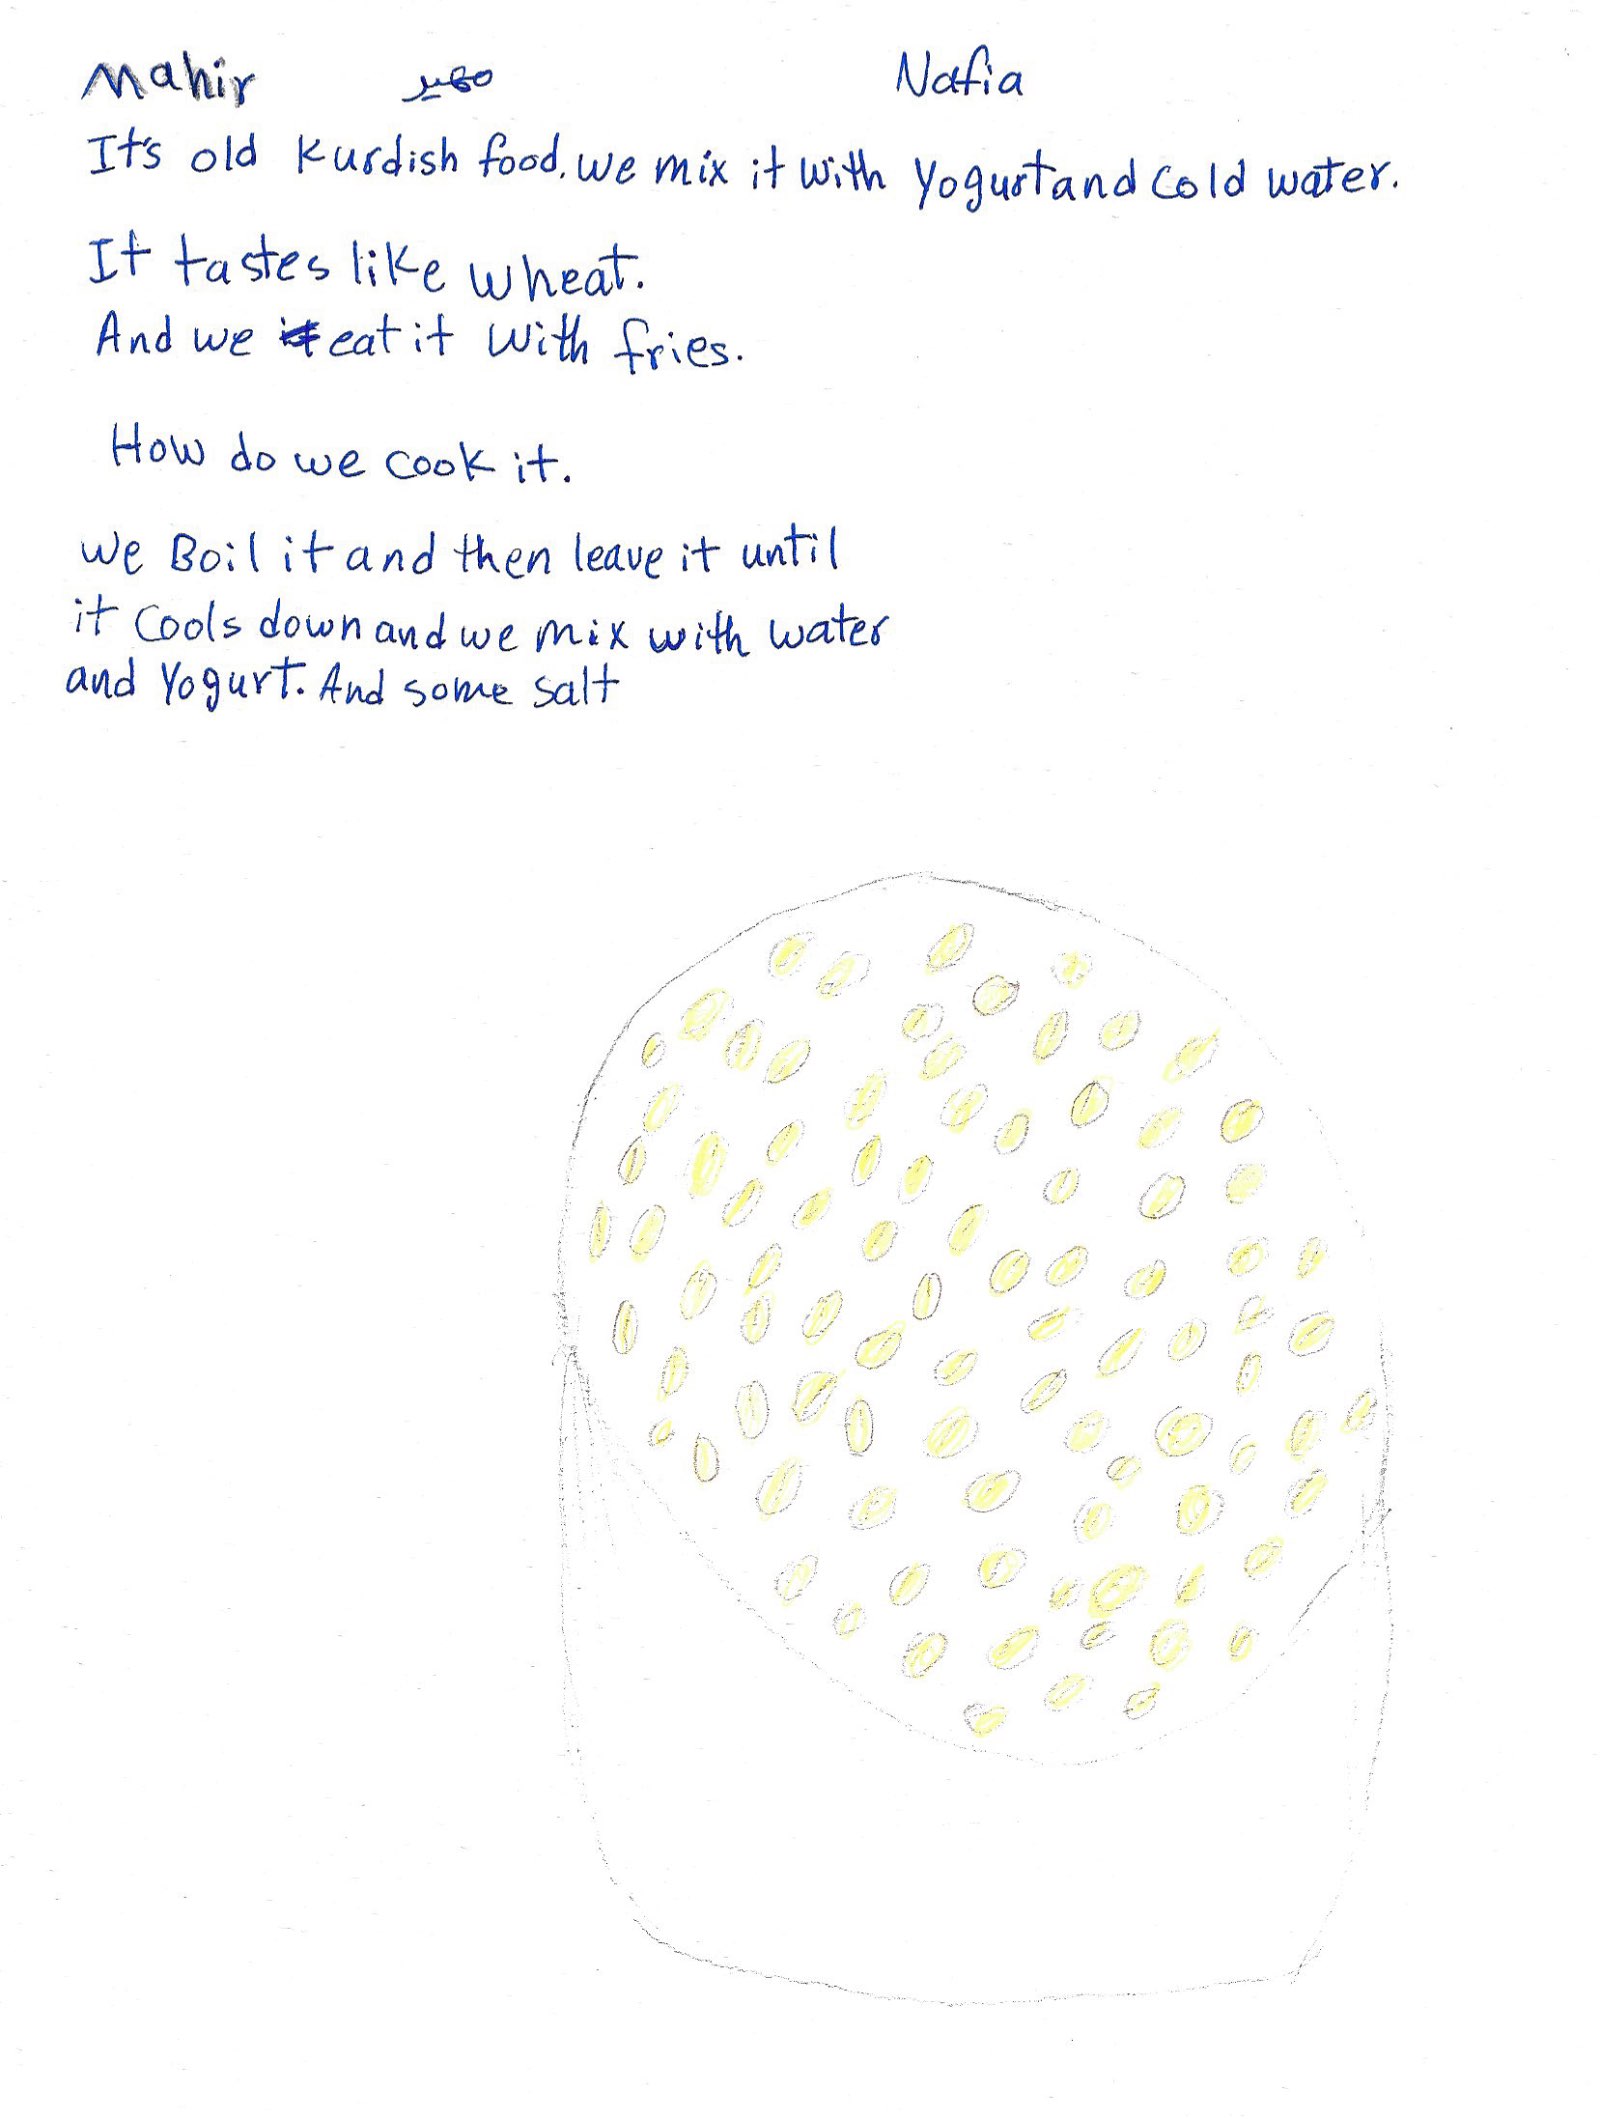 Mahir مهير Nafia
It's old Kurdish food. we mix it with Yogurt and cold water.
It tastes like wheat.
And we eat it with fries.
How do we cook it.
we Boil it and then leave it until
it cools down and we mix with water
and Yogurt. And some salt